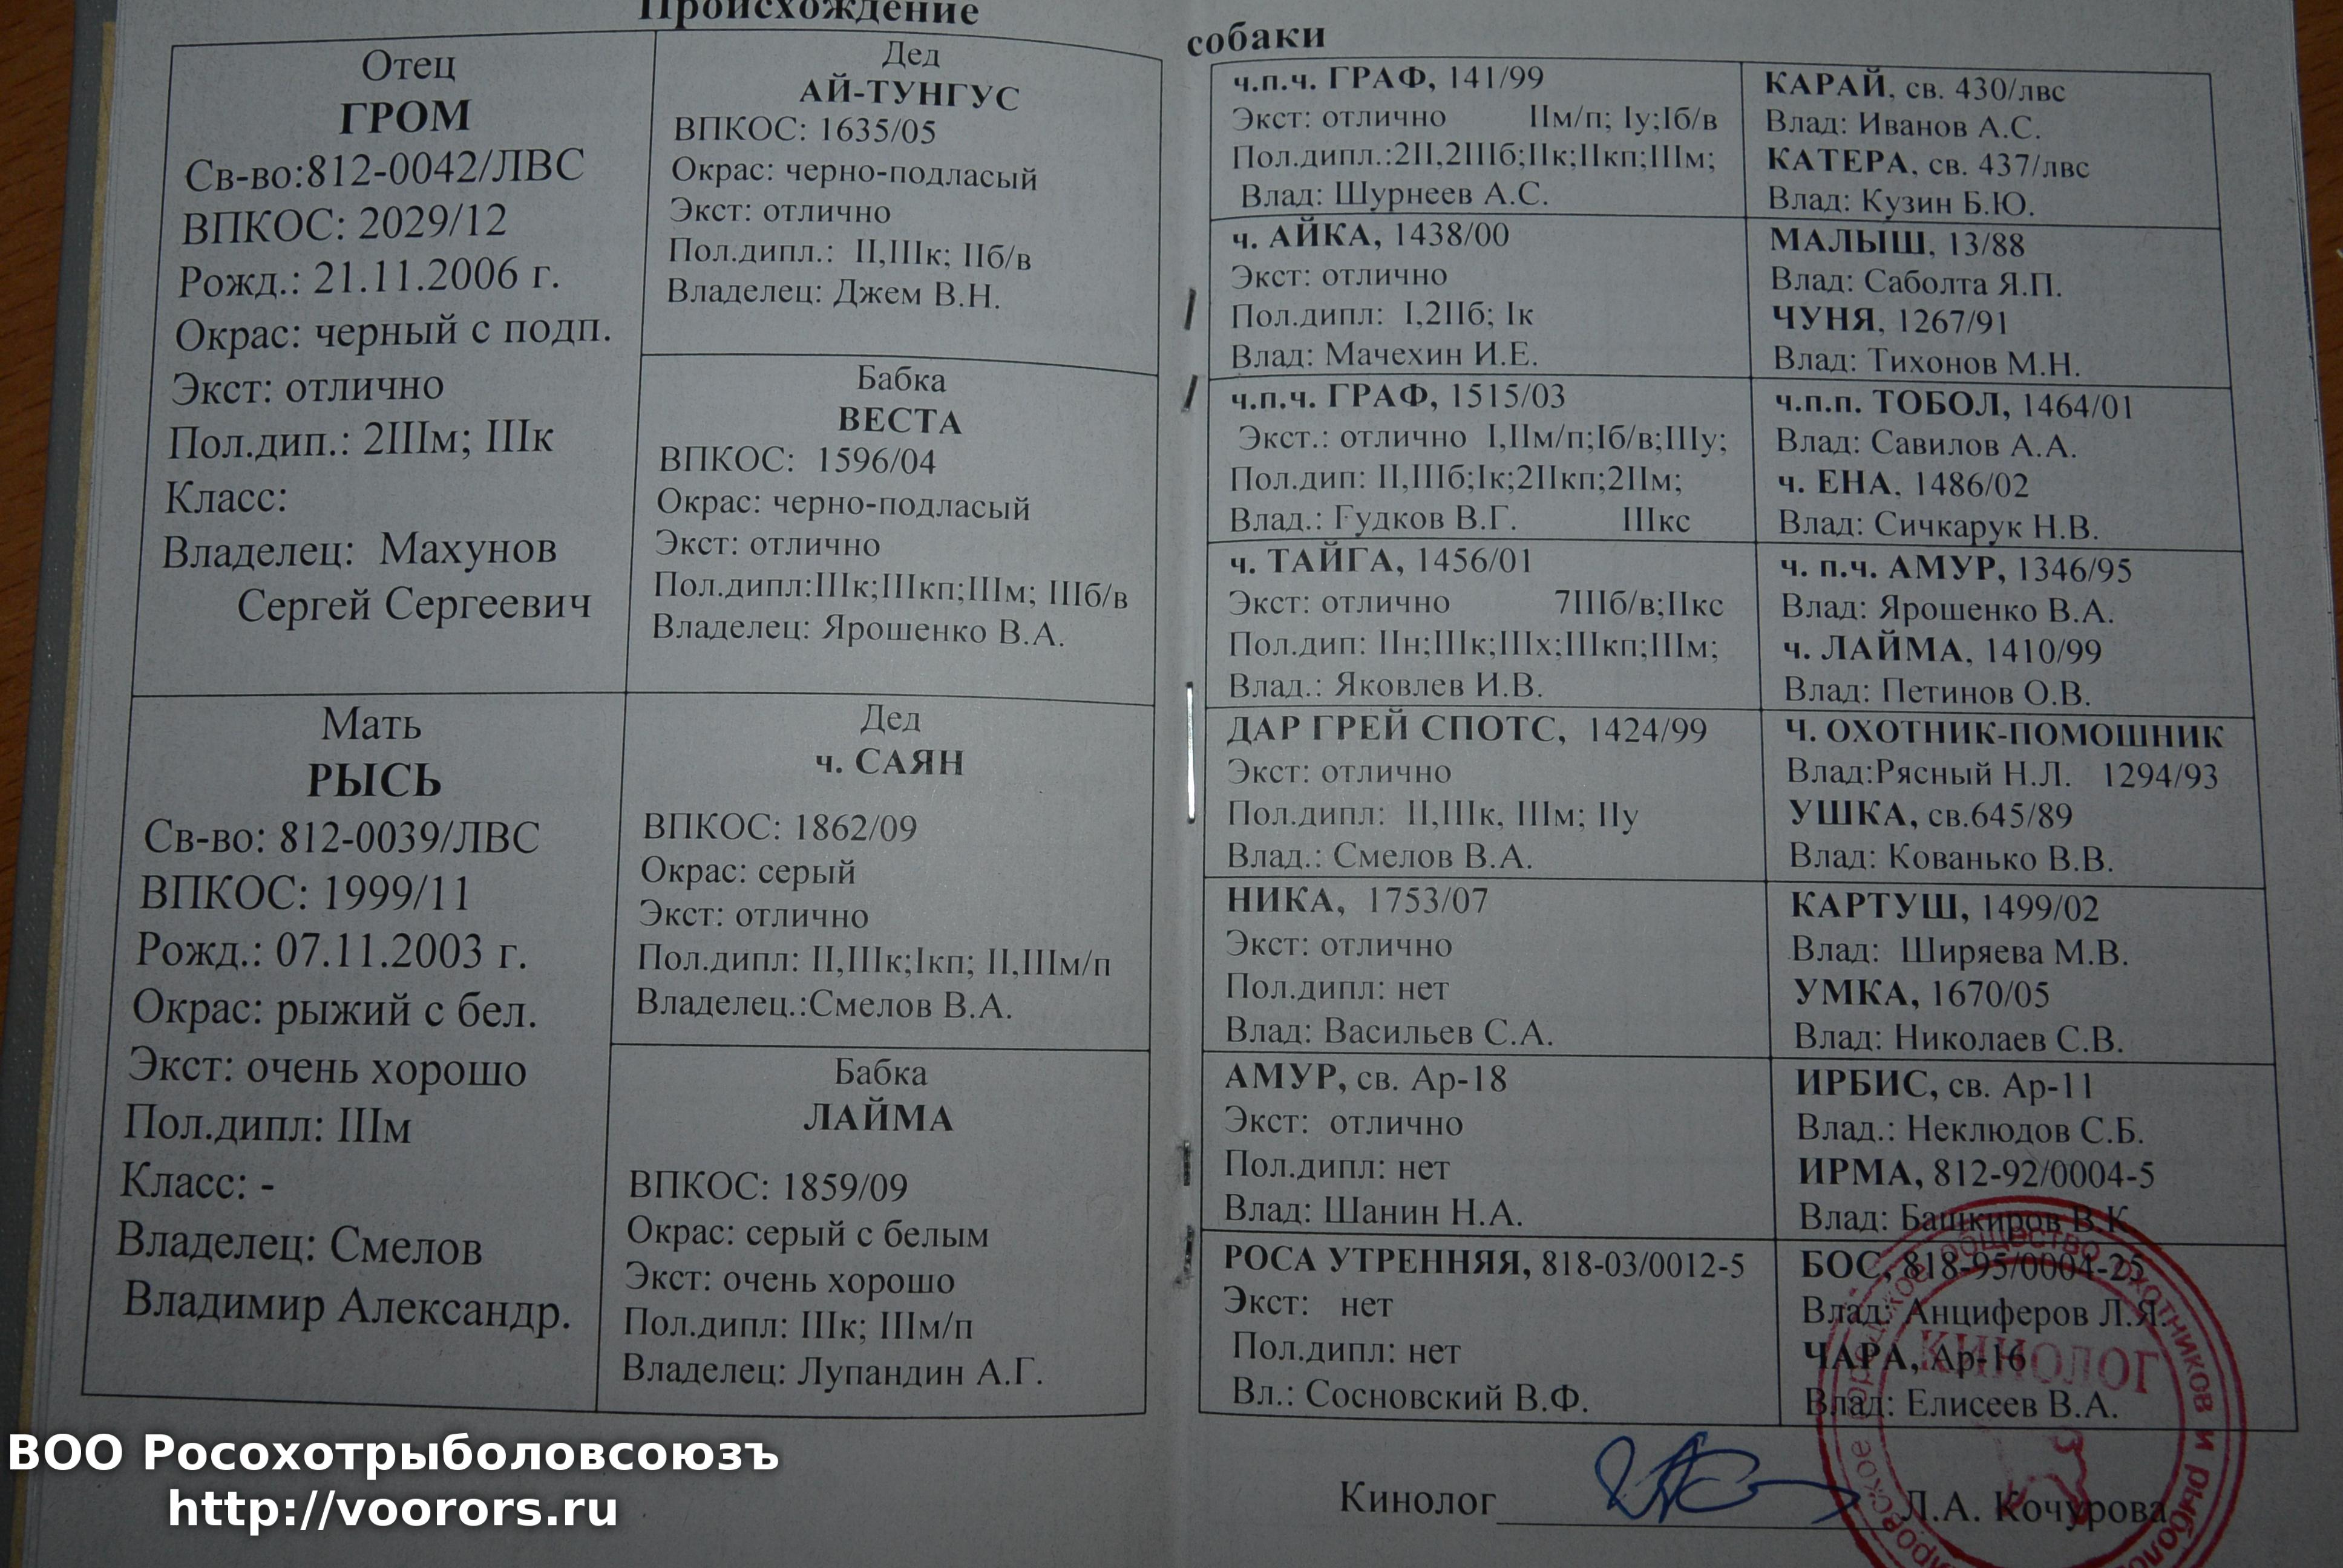 Происхождение
собаки
Отец
ГРОМ
Св-во:812-0042/ЛВС
ВПКОС: 2029/12
Рожд.: 21.11.2006 г.
Окрас: черный с подп.
Экст: отлично
Пол.дип.: 2IIIм; IIIк
Класс:
Владелец: Махунов
Сергей Сергеевич
Мать
РЫСЬ
Св-во: 812-0039/ЛВС
ВПКОС: 1999/11
Рожд.: 07.11.2003 г.
Окрас: рыжий с бел.
Экст: очень хорошо
Пол.дипл: IIIм
Класс: -
Владелец: Смелов
Владимир Александр.
Дед
АЙ-ТУНГУС
ВПКОС: 1635/05
Окрас: черно-подласый
Экст: отлично
Пол.дипл.: II,IIIк; IIб/в
Владелец: Джем В.Н.
Бабка
ВЕСТА
ВПКОС: 1596/04
Окрас: черно-подласый
Экст: отлично
Пол.дипл:IIIк;IIIкп;IIIм; IIIб/в
Владелец: Ярошенко В.А.
Дед
ч. САЯН
ВПКОС: 1862/09
Окрас: серый
Экст: отлично
Пол.дипл: II,IIIк;Iкп; II,IIIм/п
Владелец.:Смелов В.А.
Бабка
ЛАЙМА
ВПКОС: 1859/09
Окрас: серый с белым
Экст: очень хорошо
Пол.дипл: IIIк; IIIм/п
Владелец: Лупандин А.Г.
ч.п.ч. ГРАФ, 141/99
Экст: отлично IIм/п; Iу;Iб/в
Пол.дипл.:2II,2IIIб;IIк;IIкп;IIIм;
Влад: Шурнеев А.С.
ч. АЙКА, 1438/00
Экст: отлично
Пол.дипл: I,2IIб; Iк
Влад: Мачехин И.Е.
ч.п.ч. ГРАФ, 1515/03
Экст.: отлично I,IIм/п;Iб/в;IIIу;
Пол.дип: II,IIIб;Iк;2IIкп;2IIм;
Влад.: Гудков В.Г. IIIкс
ч. ТАЙГА, 1456/01
Экст: отлично 7IIIб/в;IIкс
Пол.дип: IIн;IIIк;IIIх;IIIкп;IIIм;
Влад.: Яковлев И.В.
ДАР ГРЕЙ СПОТС, 1424/99
Экст: отлично
Пол.дипл: II,IIIк, IIIм; IIу
Влад.: Смелов В.А.
НИКА, 1753/07
Экст: отлично
Пол.дипл: нет
Влад: Васильев С.А.
АМУР, св. Ар-18
Экст: отлично
Пол.дипл: нет
Влад: Шанин Н.А.
РОСА УТРЕННЯЯ, 818-03/0012-5
Экст: нет
Пол.дипл: нет
Вл.: Сосновский В.Ф.
КАРАЙ, св. 430/лвс
Влад: Иванов А.С.
КАТЕРА, св. 437/лвс
Влад: Кузин Б.Ю.
МАЛЫШ, 13/88
Влад: Саболта Я.П.
ЧУНЯ, 1267/91
Влад: Тихонов М.Н.
ч.п.п. ТОБОЛ, 1464/01
Влад: Савилов А.А.
ч. ЕНА, 1486/02
Влад: Сичкарук Н.В.
ч. п.ч. АМУР, 1346/95
Влад: Ярошенко В.А.
ч. ЛАЙМА, 1410/99
Влад: Петинов О.В.
Ч. ОХОТНИК-ПОМОШНИК
Влад:Рясный Н.Л. 1294/93
УШКА, св.645/89
Влад: Кованько В.В.
КАРТУШ, 1499/02
Влад: Ширяева М.В.
УМКА, 1670/05
Влад: Николаев С.В.
ИРБИС, св. Ар-11
Влад.: Неклюдов С.Б.
ИРМА, 812-92/0004-5
Влад: Башкиров В.К.
БОС, 818-95/0004-25
Влад: Анциферов Л.Я.
ЧАРА, Ар-16
Влад: Елисеев В.А.
общество охотников и
КИНОЛОГ
Кинолог Л.А. Кочурова
ВОО Росохотрыболовсоюзъ
http://voorors.ru